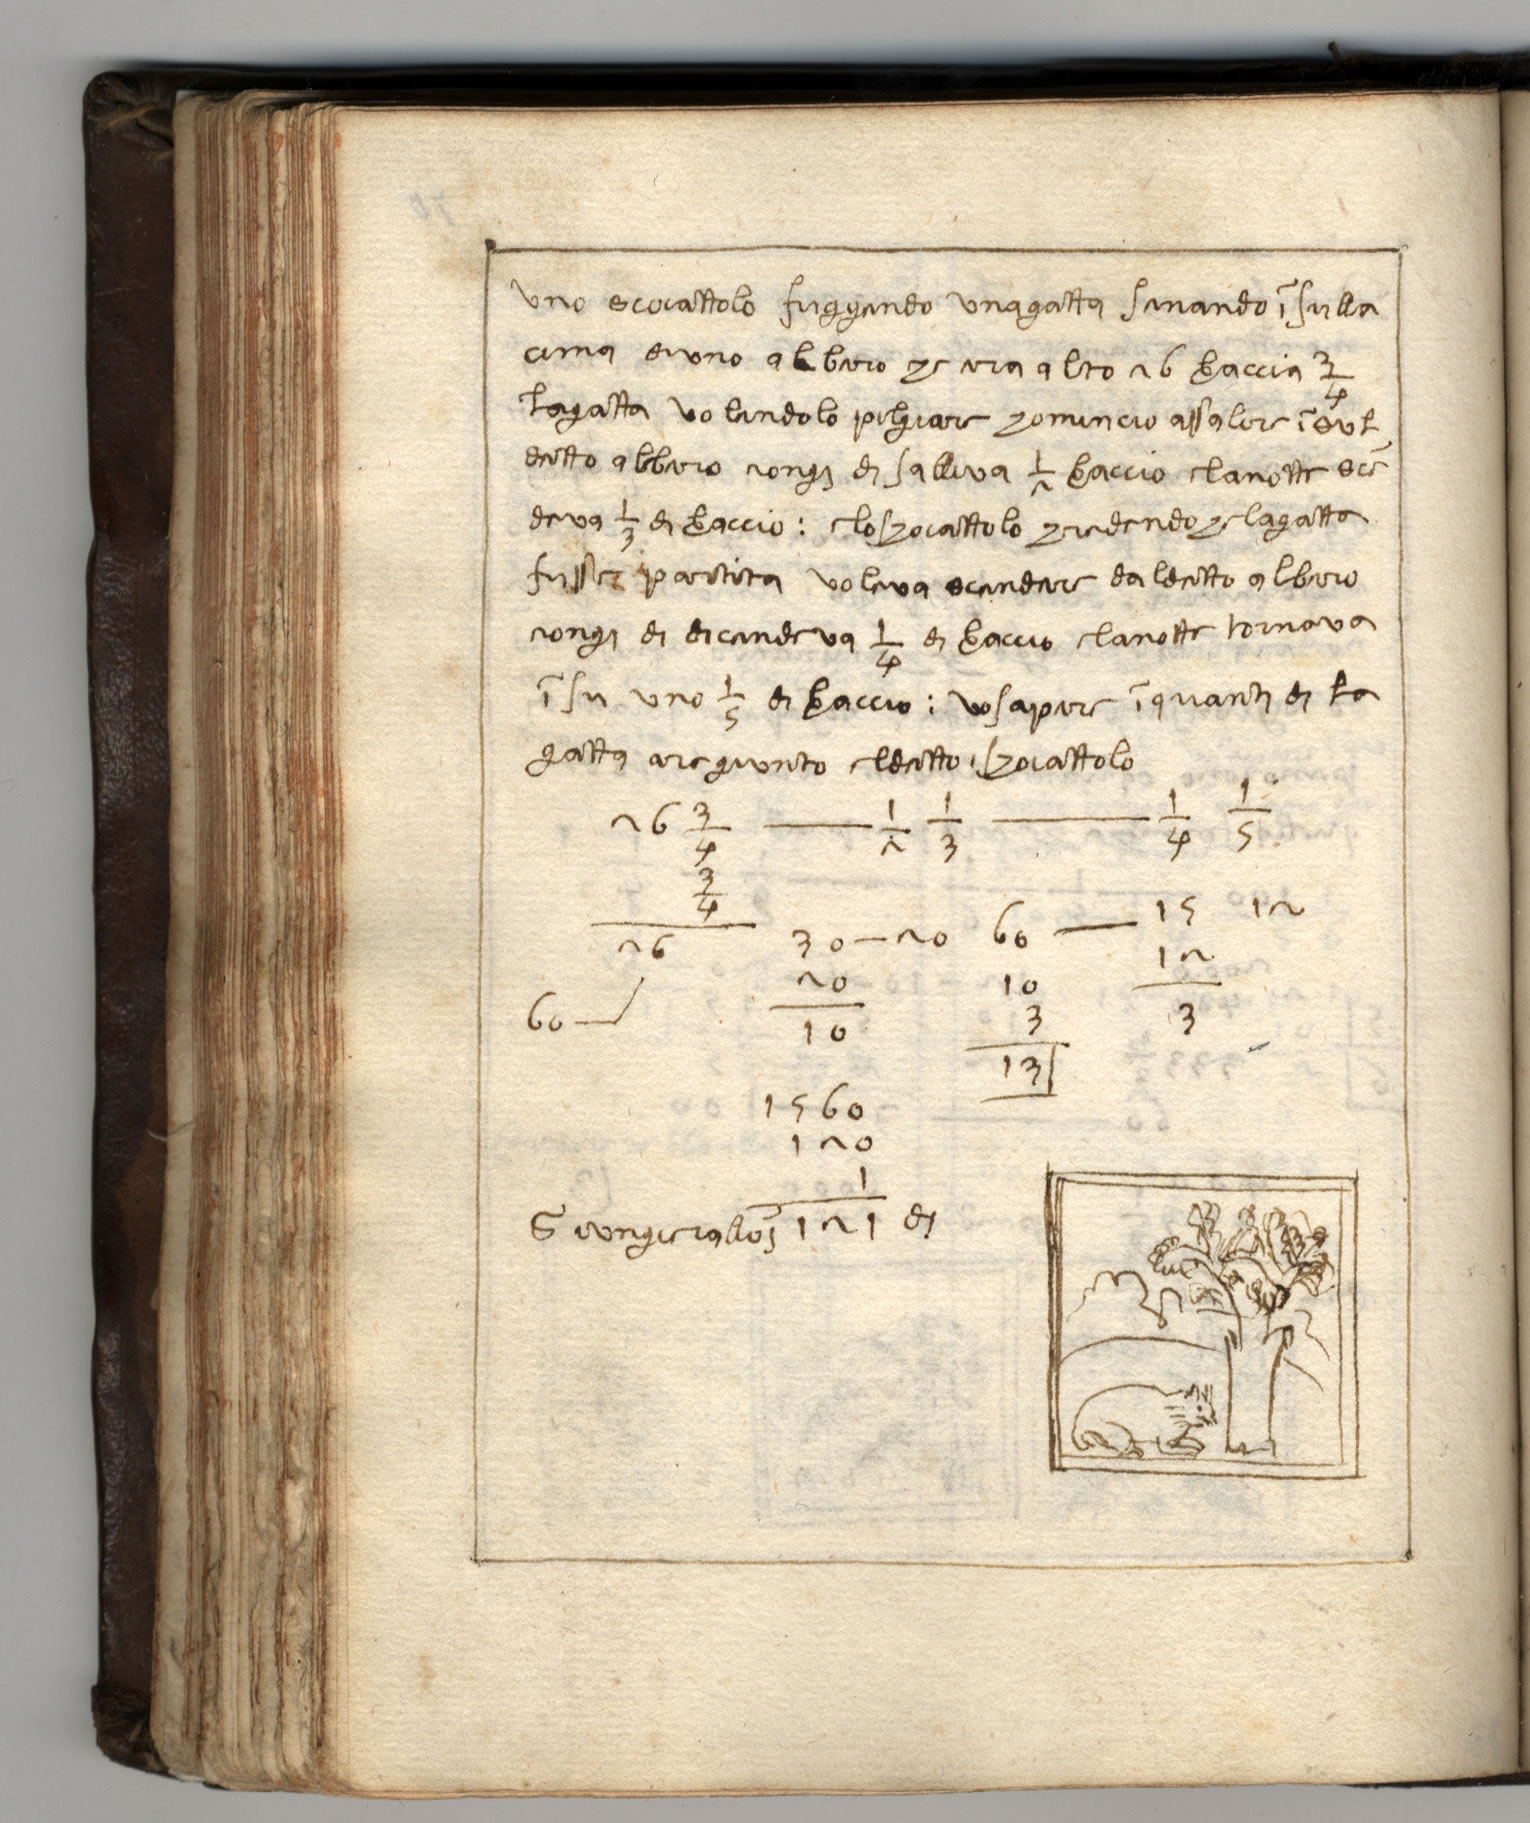 uno scoiattolo fuggendo una gatta senando ī sulla
cima di uno albbero che era alto 26 braccia 3/4
la gatta volendolo pilgiare chomincio assalire ī sul
detto albbero congi di saliva 1/2 braccio e la notte scē
deva 1/3 di braccio : e lo schoiattolo chredendo che la gatta
fusse partita voleva scendere dal detto albero
congi di dicendeva 1/4 di braccio e la notte tornava
ī su uno 1/5 di braccio : vo sapere ī quanti di la
gatta are giunto el detto ischoiattolo
26 3/4 — 1/2 1/3 — 1/4 1/5
3/4
26 30 — 20 60 — 15 12
20 10 12
60 10 3 3
13
1560
120
1
Giungieralloī 121 di